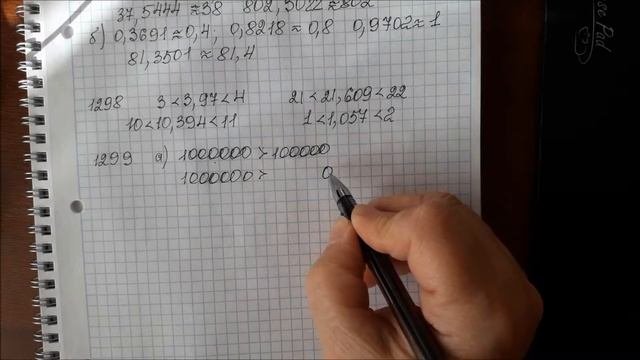 37,5444≈38 802,3022≈802
б) 0,3691≈0,4; 0,8218≈0,8 0,9702≈1
81,3501≈81,4
1298 3<3,97<4 21<21,609<22
10<10,394<11 1<1,057<2
1299 а) 1000000>100000
1000000> 0